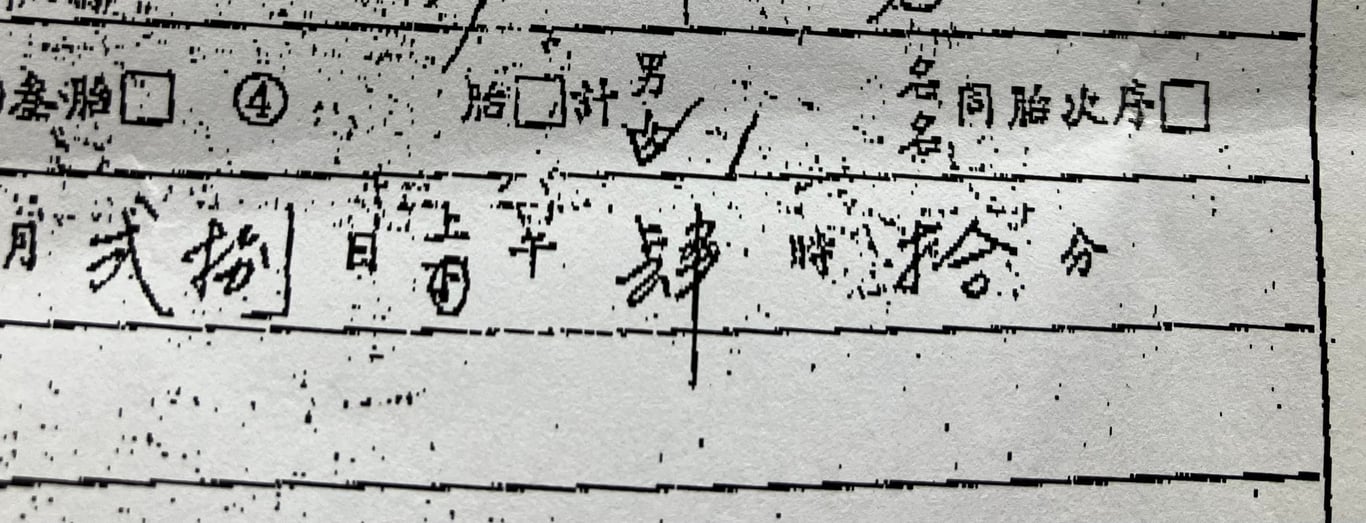 叁胎□ ④ 胎□計 男 女 名 名 同胎次序□
月 貳捌 日 上 下 午 肆 時 拾 分